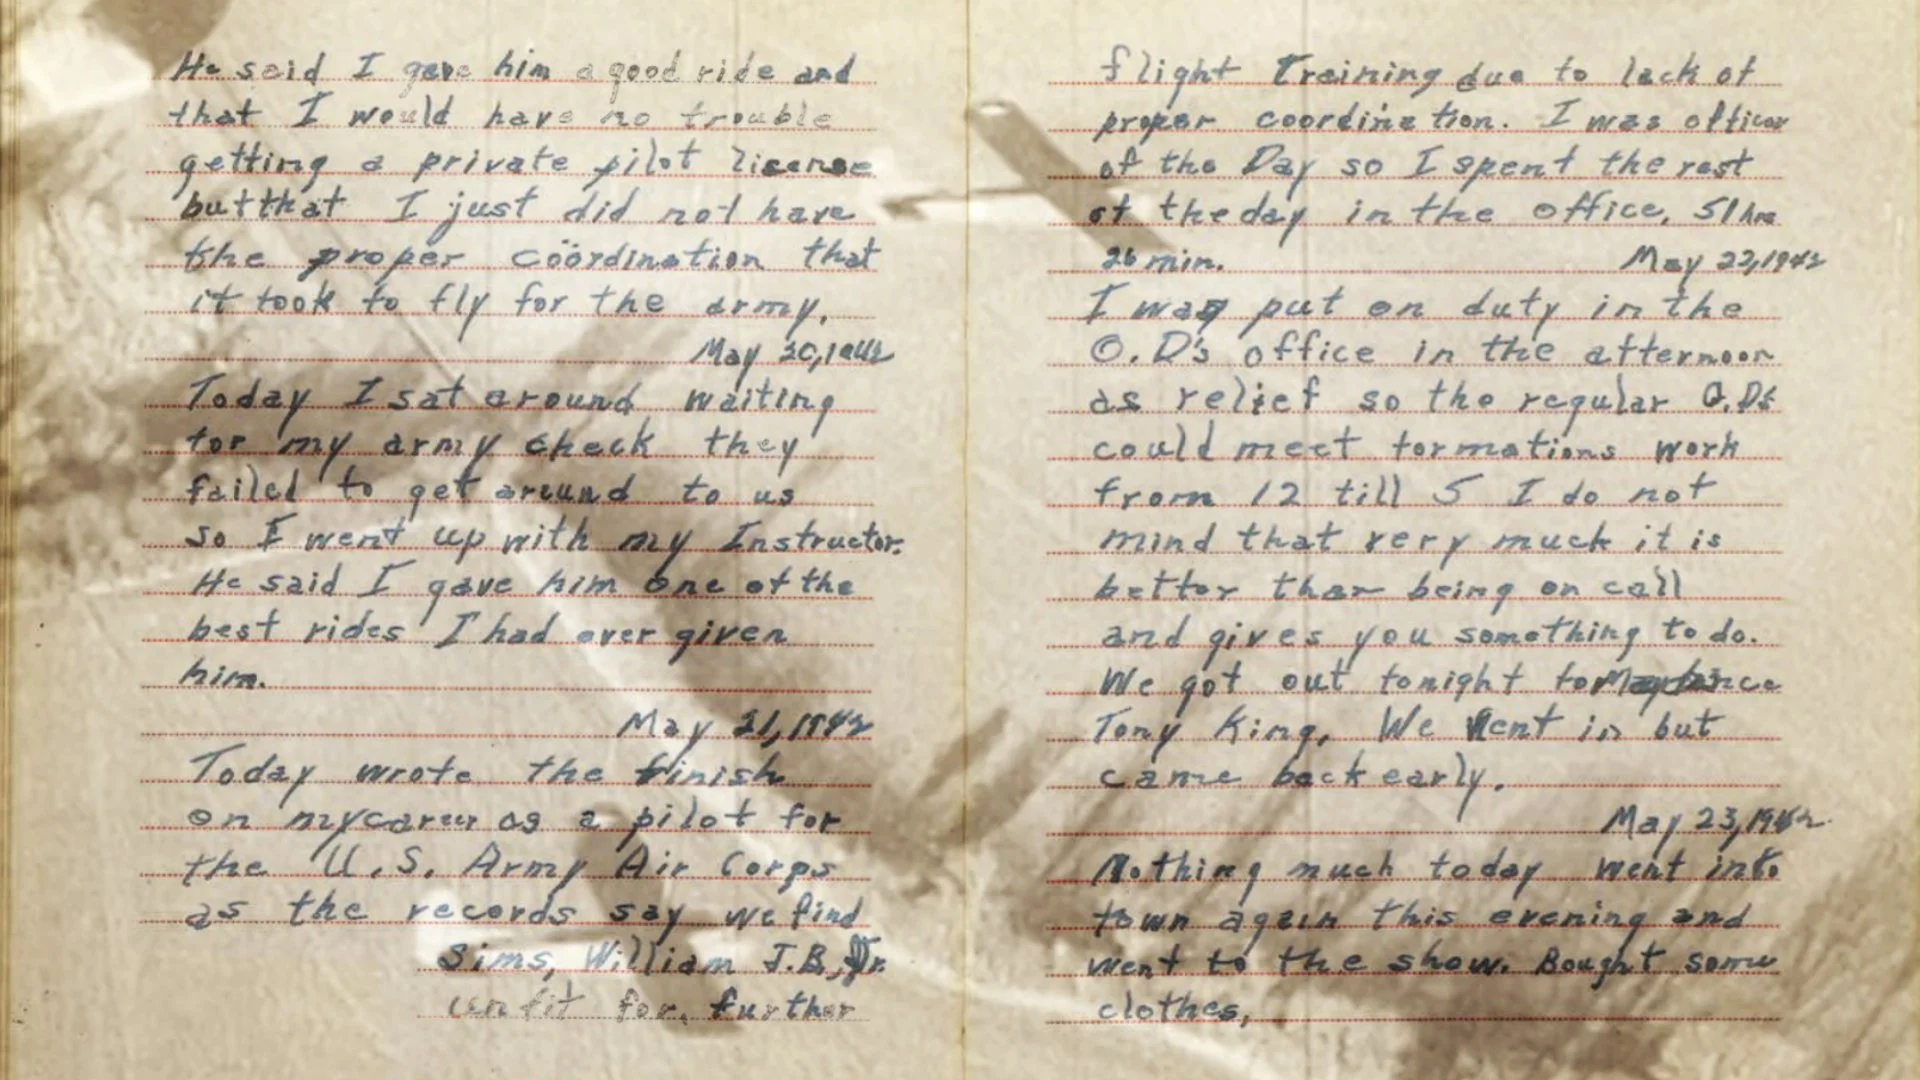 He said I gave him a good ride and
that I would have no trouble
getting a private pilot license
but that I just did not have
the proper coördination that
it took to fly for the army.
May 20, 1942
Today I sat around waiting
for my army check they
failed to get around to us
so I went up with my Instructor.
He said I gave him one of the
best rides I had ever given
him.
May 21, 1942
Today wrote the finish
on my career as a pilot for
the U.S. Army Air Corps
as the records say we find
Sims, William J.B., Jr.
unfit for further
flight Training due to lack of
proper coordination. I was officer
of the Day so I spent the rest
of the day in the office, 51 hrs
26 min.
May 22, 1942
I was put on duty in the
O.D's office in the afternoon
as relief so the regular O.D's
could meet formations work
from 12 till 5 I do not
mind that very much it is
better than being on call
and gives you something to do.
We got out tonight to
Tony King, We went in but
came back early.
May 23, 1942
Nothing much today went into
town again this evening and
went to the show. Bought some
clothes,